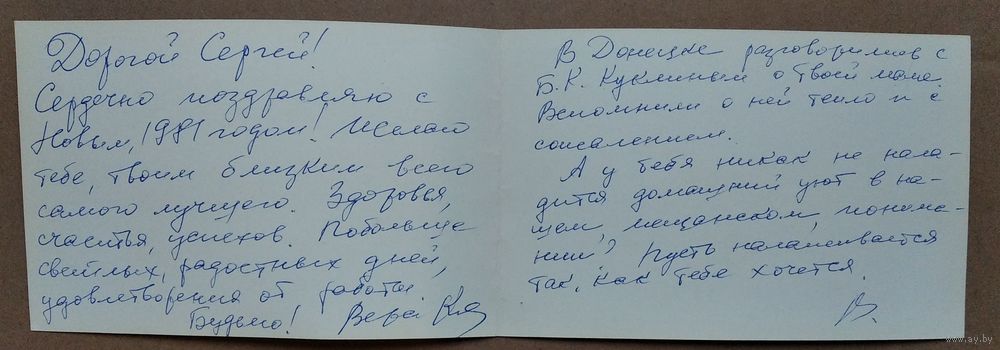 Дорогой Сергей!
Сердечно поздравляю с
Новым, 1981 годом! Желаю
тебе, твоим близким всего
самого лучшего. Здоровья,
счастья, успехов. Побольше
светлых, радостных дней,
удовлетворения от работы.
Будьмо! Вера
В Донецке разговорились с
Б.К. Куклиным о твоей маме.
Вспомнили о ней тепло и с
сожалением.
А у тебя никак не нала-
дится домашний уют в на-
шем, мещанском, понима-
нии? Пусть налаживается
так, как тебе хочется.
В.
www.ay.by